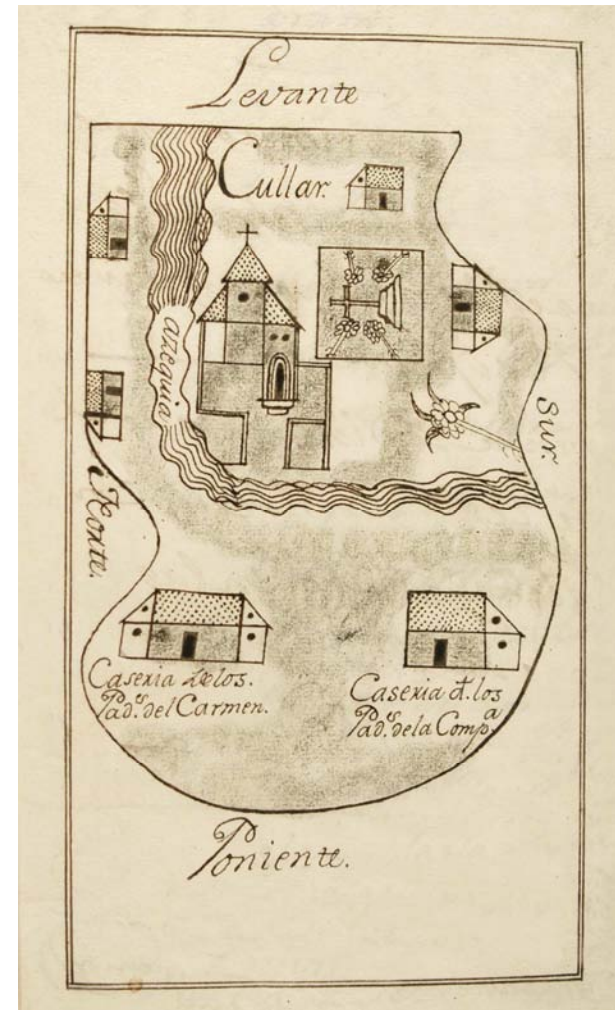 Levante
Cullar.
azequia
Sur.
Norte.
Caseria de los.
Pad.^s del Carmen.
Caseria d. los
Pad.^s de la Comp.^a
Poniente.